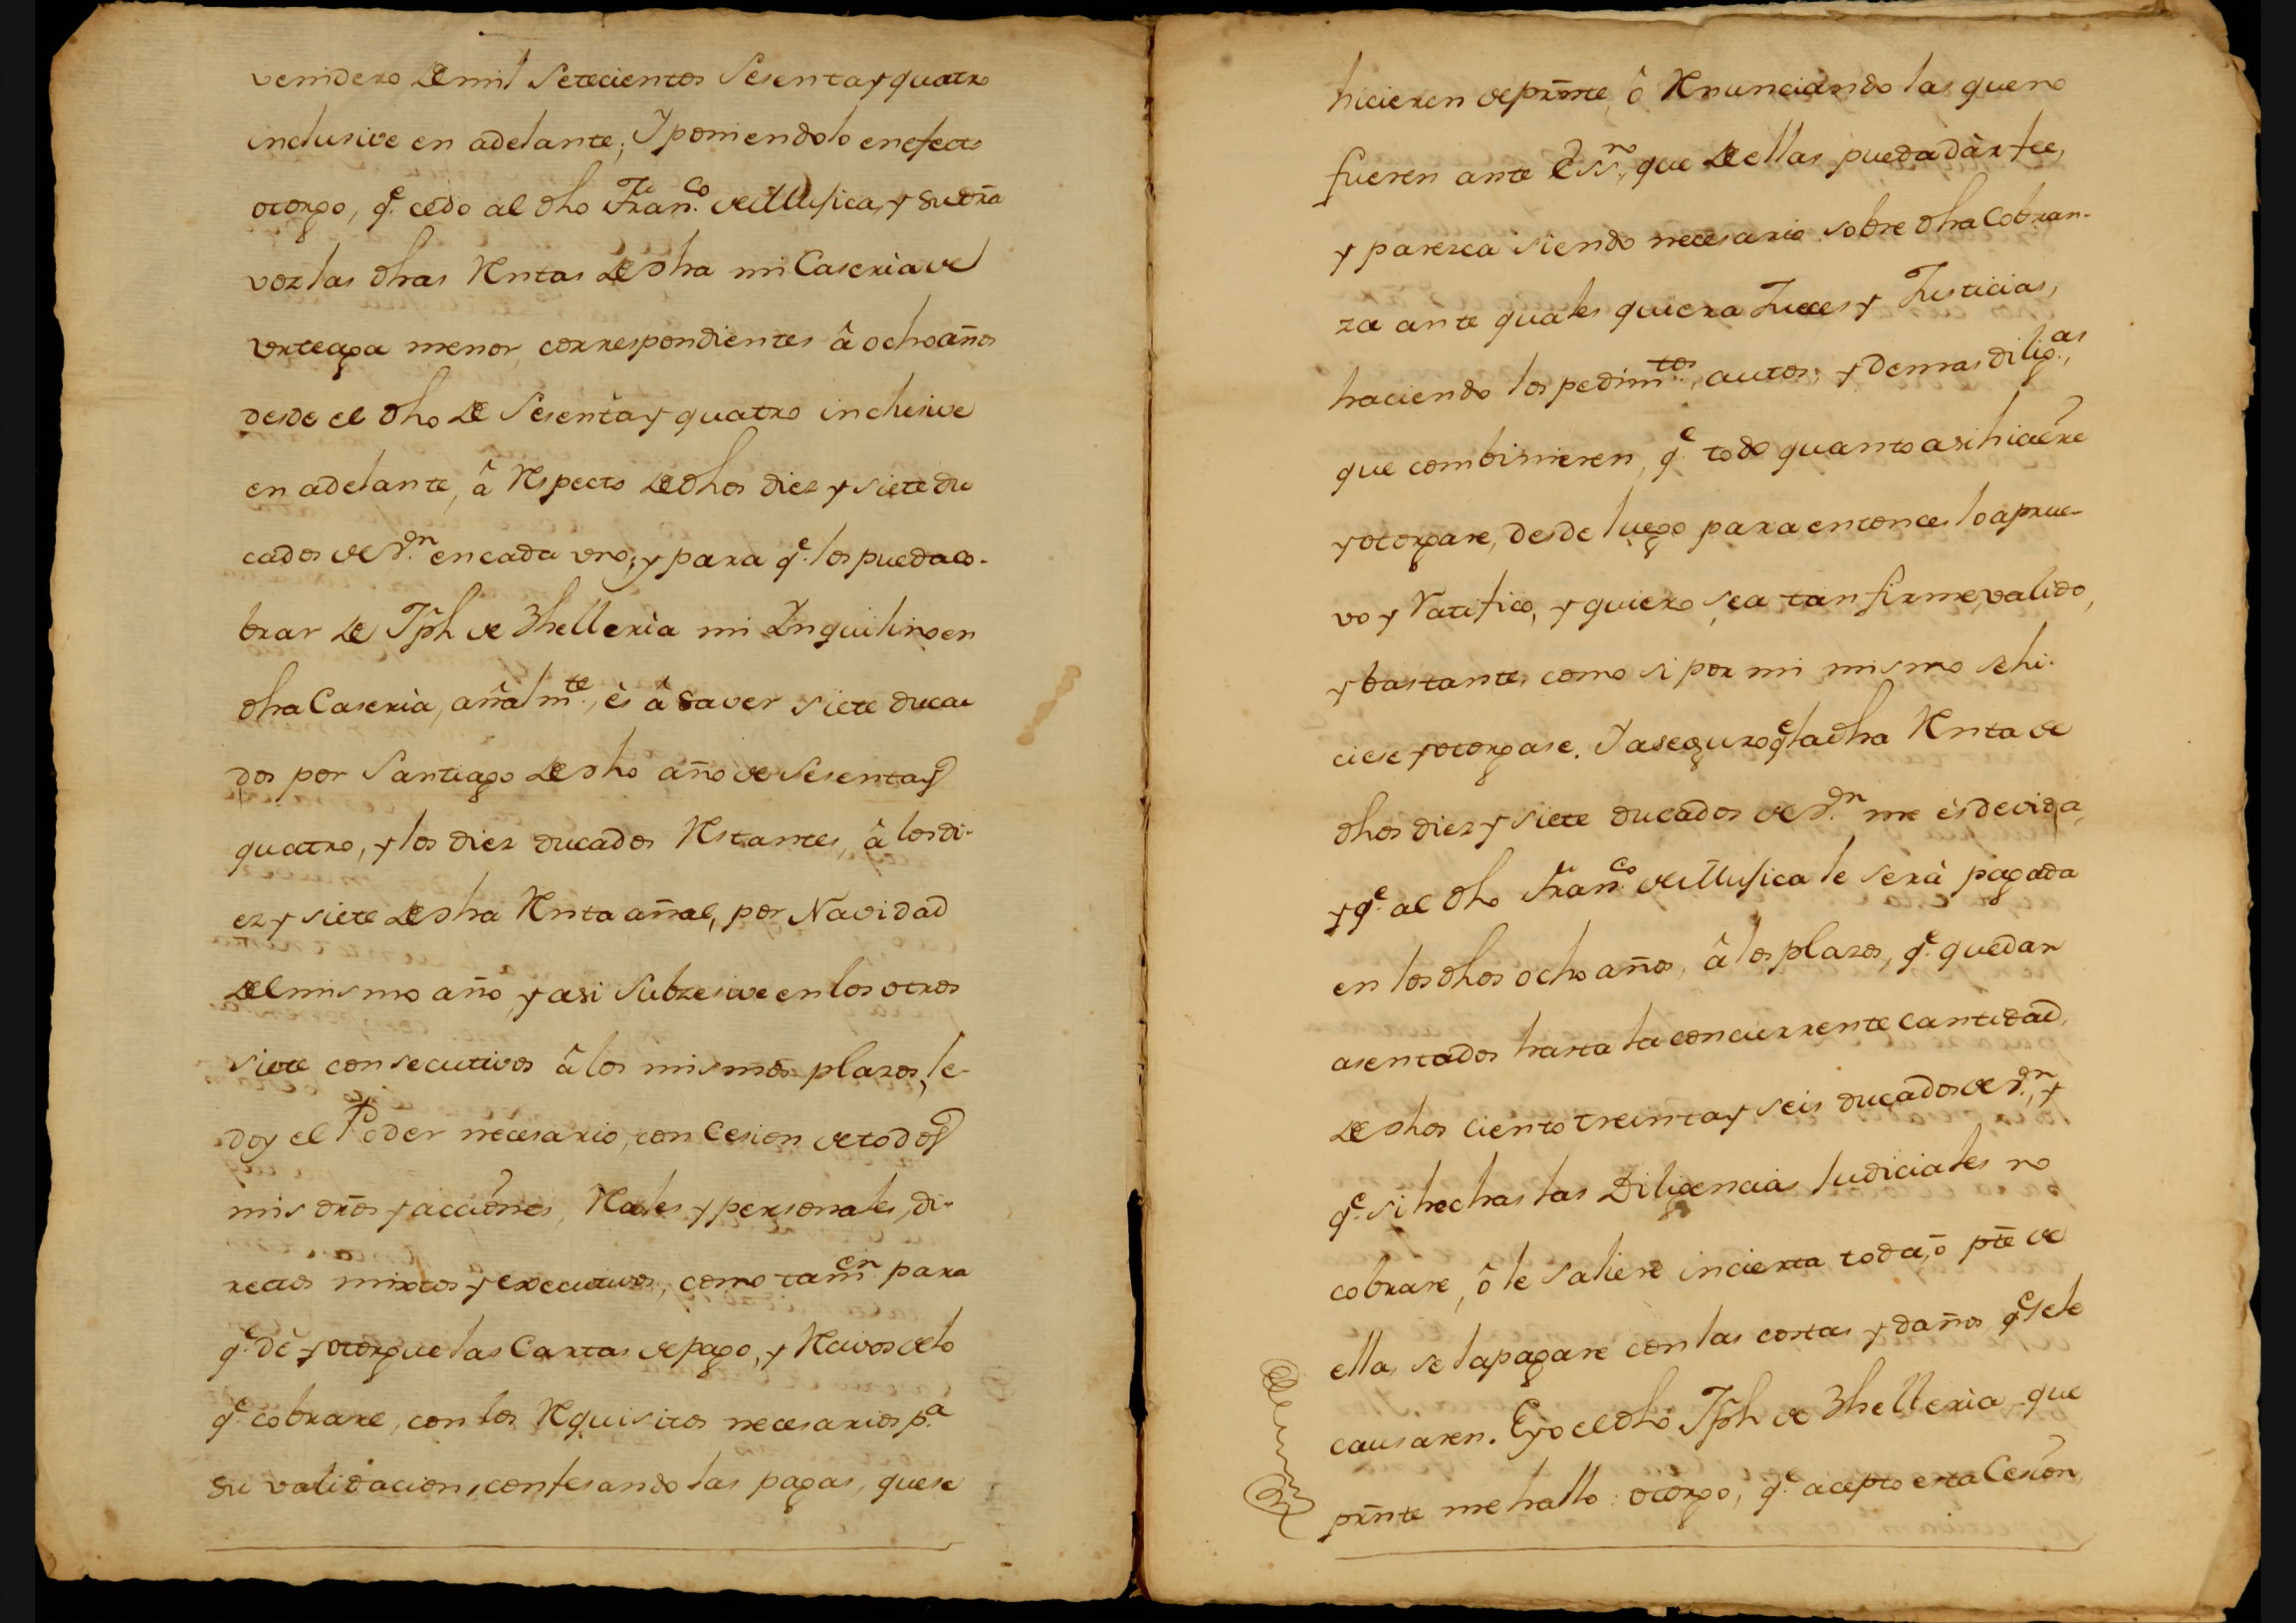 venidero de mil Setecientos Sesenta y quatro
inclusive en adelante; Y poniendolo en efecto
otorgo, q.e cedo al dho Fran.co de Musica, y su dra
voz las dhas Rentas de dha mi Caseria de
Urteaga menor, correspondientes â ocho años
desde el dho de Sesenta y quatro inclusive
en adelante, â Respecto de dhos diez y siete du
cados de v.on en cada uno; y para q.e los pueda co-
brar de Jph de Zhelleria mi Inquilino en
dha Caseria, añalm.te, ès â saver siete duca
dos por Santiago de dho año de Sesenta y
quatro, y los diez ducados Restantes, â los di-
ez y siete de dha Renta añal, por Navidad
del mismo año, y asi Subzesive en los otros
siete consecutivos â los mismos plazos, le
doy el Poder necesario, con Cesion de todos
mis dros y acciones, Reales y personales, di-
rectos mixtos y executivos, como tam.en para
q.e dè y otorgue las Cartas de pago, y Recivos de lo
q.e cobrare, con los Requisitos necesarios p.a
su validacion, confesando las pagas, que se
hicieren de prnte, ô Renunciando las que no
fueren ante Ess.no, que de ellas pueda dàr fee,
y parezca siendo necesario sobre dha Cobran-
za ante quales quiera Jueces y Justicias,
haciendo los pedim.tos, autos, y demas dilig.as,
que combinieren, q.e todo quanto asi hiciere
y otorgare, desde luego para entonces lo aprue-
vo y Ratifico, y quiero sea tan firme, valido,
y bastante, como si por mi mismo se hi-
ciese y otorgase. Y aseguro q.e la dha Renta de
dhos diez y siete ducados de v.on me ès devida,
y q.e al dho Fran.co de Musica le serà pagada
en los dhos ocho años, â los plazos, q.e quedan
asentados hasta la concurrente cantidad,
de dhos ciento treinta y seis ducados de v.on, y
q.e si hechas las Diligencias Judiciales no
cobrare, ô le saliere incierta toda, ô pte de
ella, se la pagare con las costas y daños q.e se le
causaren. E yo el dho Jph de Zhelleria que
prnte me hallo: otorgo, q.e acepto esta Cesion,